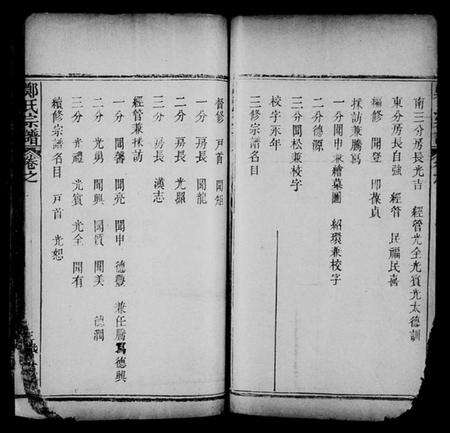 南三分房長光吉　經管光全光賓光太德訓
東分房長自強　經管　民福民喜
編修　開登　即葆貞
採訪兼謄寫
一分開申兼繪墓圖　紹環兼校字
二分德源
三分開松兼校字
校字永年
三修宗譜名目
督修　戶首　開矩
一分　房長　開龍
二分　房長　光顯
三分　房長　漢志
經管兼採訪
一分　開馨　開亮　開申　德艷　兼任謄寫　德興
二分　光勇　開興　開質　開美　德潤
三分　光禮　光賓　光全　開有
續修宗譜名目　戶首　光恕
鄭氏宗譜　卷之